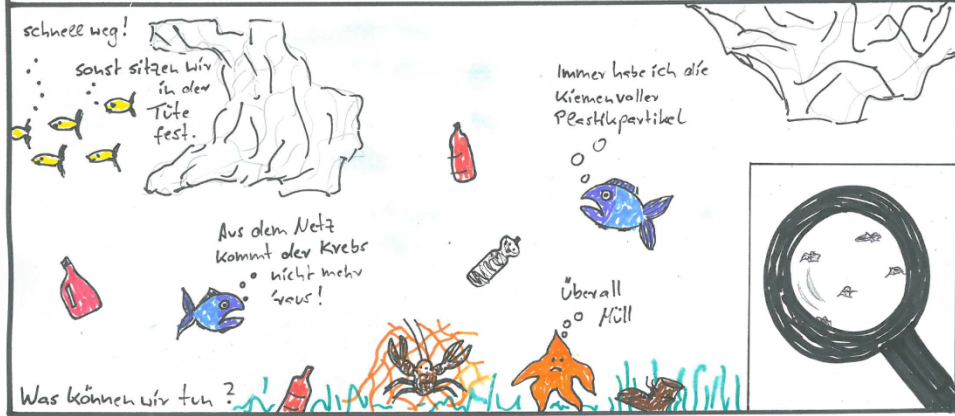 schnell weg!
sonst sitzen wir
in der
Tüte
fest.
Immer habe ich die
Kiemen voller
Plastikpartikel
Aus dem Netz
kommt der Krebs
nicht mehr
'raus!
Überall
Müll
Was können wir tun?